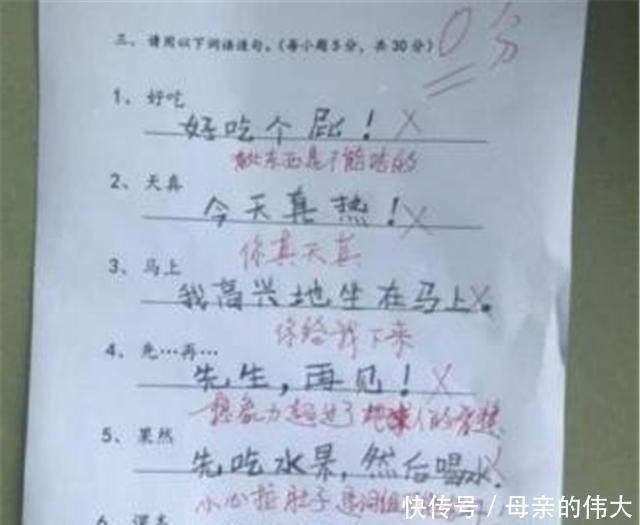 三、请用以下词语造句。(每小题5分，共30分) 0分
1、好吃
好吃个屁！
此东西是不能吃的
2、天真
今天真热！
你真天真
3、马上
我高兴地坐在马上。
你给我下来
4、先…再…
先生，再见！
想象力超过了地球人的
5、果然
先吃水果，然后喝水。
小心拉肚子
6、课本
快传号／母亲的伟大